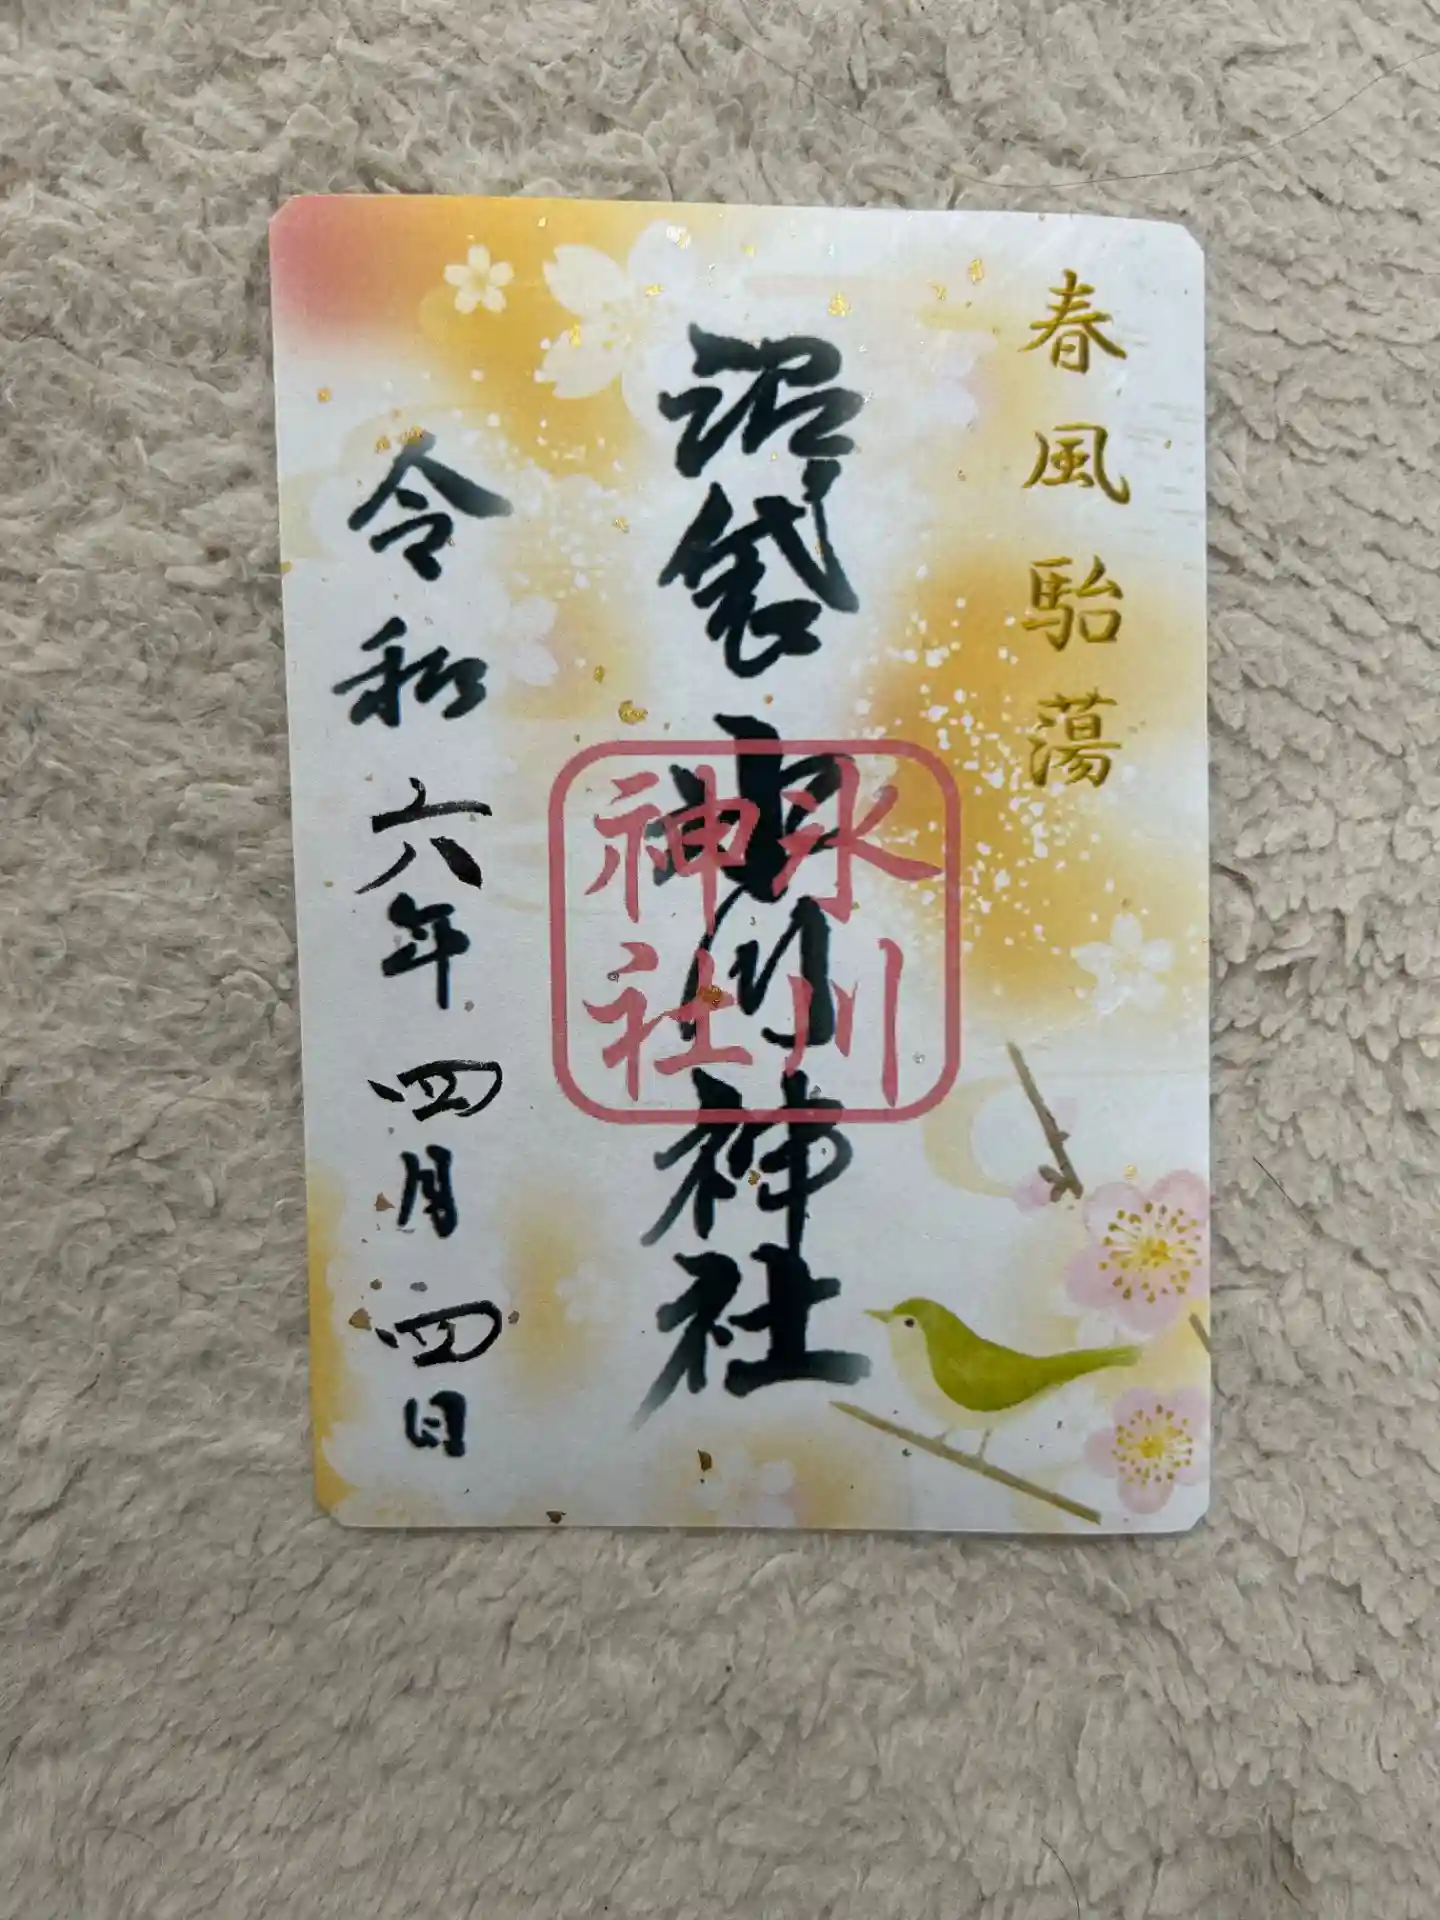 春風駘蕩
沼袋氷川神社
氷川
神社
令和六年四月四日